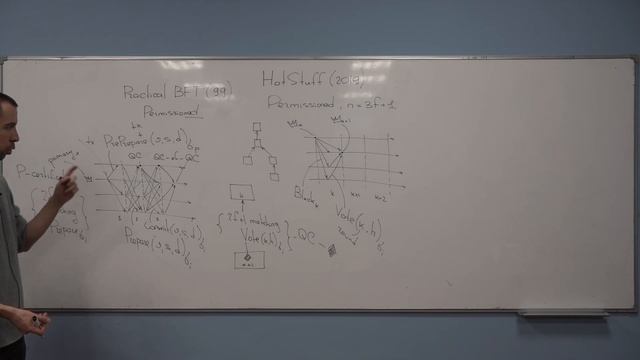 Practical BFT (99)
Permissioned
tx
tx
PrePrepare(v,s,d)
primary
QC QC-of-QC
P-certificate
Prepare
Commit(v,s,d)
Prepare(v,s,d)
HotStuff (2019)
Permissioned, n=3f+1
Block k
k k+1 k+2
Vote(k,h)
k
{ 2f+1 matching
Vote(k,h) } - QC
k+1